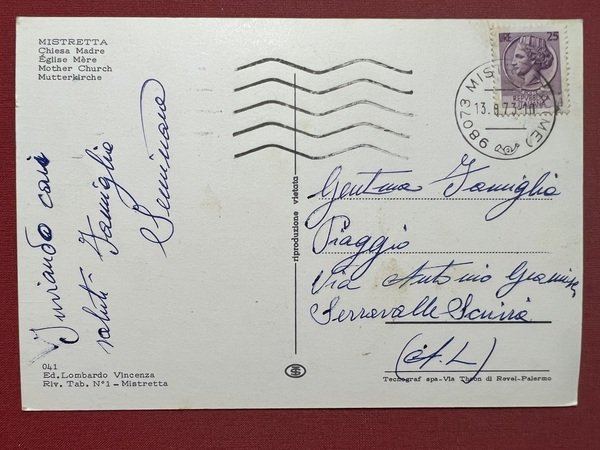 MISTRETTA
Chiesa Madre
Église Mère
Mother Church
Mutterkirche
Inviando cari
saluti Famiglia
LIRE 25
98073 MISTRETTA (ME)
13.8.73
riproduzione vietata
Gentma Famiglia
Piaggio
Via Antonio
Serravalle Scrivia
(A.L)
041
Ed. Lombardo Vincenza
Riv. Tab. N°1 - Mistretta
Tecnograf spa-Via Theon di Revel-Palermo